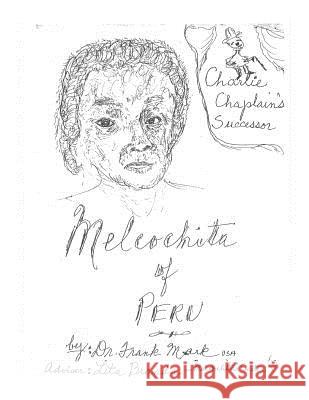 Charlie
Chaplain's
Successor
Melcochita
of
PERU
by: Dr. Frank Mark USA
Advisor: Lita